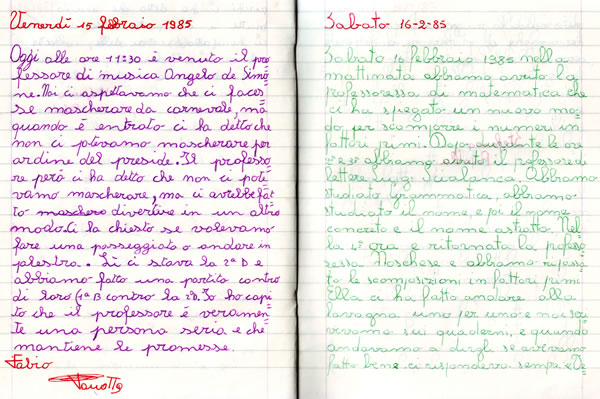 Venerdì 15 febbraio 1985
Oggi alle ore 11:30 è venuto il pro
fessore di musica Angelo de Simo
ne. Noi ci aspettavamo che ci faces
se mascherare da carnevale, ma
quando è entrato ci ha detto che
non ci potevamo mascherare per
ordine del preside. Il professo
re però ci ha detto che non ci pote
vamo mascherare, ma ci avrebbe fat
to maschero divertire in un altro
modo. Ci ha chiesto se volevamo
fare una passeggiata o andare in
palestra. Lì ci stava la 2ª D e
abbiamo fatto una partita contro
di loro (1ª B contro la 2ª D). Io ho capi
to che il professore è veramen
te una persona seria e che
mantiene le promesse.
Fabio
Sabato 16-2-85
Sabato 16 febbraio 1985 nella
mattinata abbiamo avuto la
professoressa di matematica che
ci ha spiegato un nuovo mo
do per scomporre i numeri in
fattori primi. Dopo durante le ore
2ª e 3ª abbiamo avuto il professore di
lettere Luigi Scialanca. Abbiamo
studiato grammatica, abbiamo
studiato il nome, e poi il nome
concreto e il nome astratto. Nel
la 4ª ora è ritornata la profes
soressa Moschese e abbiamo ripassa
to le scomposizioni in fattori primi
Ella ci ha fatto andare alla
lavagna uno per uno e noi scri
vevamo sui quaderni, e quando
andavamo a dirgli se avevamo
fatto bene ci rispondeva sempre «De